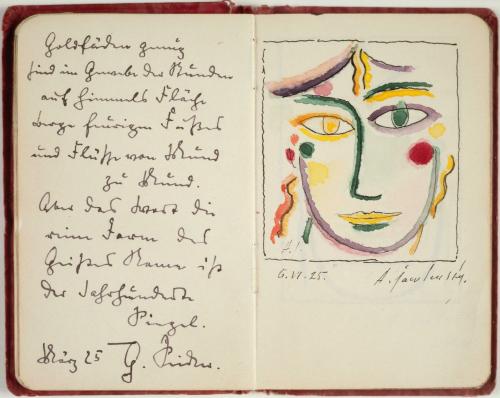 Goldfäden genug
sind im Gewebe der Stunden
auf Himmels Fläche
berge feurigen Fußes
und Flüsse von Mund
zu Mund.
Aber das Wort die
reine Form des
Geistes Name ist
der Jahrhunderte
Siegel.
März 25 G.
A.J.
6.VI.25. A. Jawlensky.